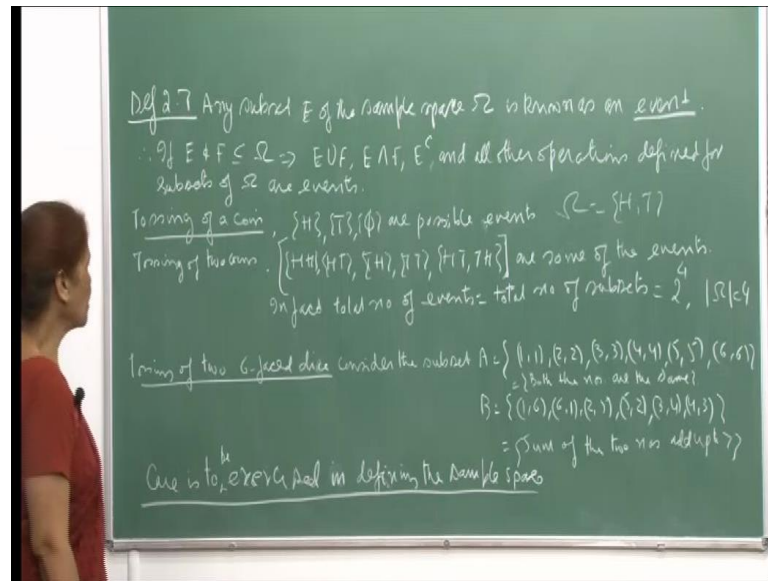 Def 2.7 Any subset E of the sample space Ω is known as an event.
∴ If E & F ⊆ Ω ⇒ E∪F, E∩F, E^c, and all other operations defined for
subsets of Ω are events.
Tossing of a coin, {H}, {T}, {φ} are possible events Ω = {H,T}
Tossing of two coins. [{HH}, {HT}, {TH}, {TT}, {HT, TH}] are some of the events.
In fact total no of events = total no of subsets = 2^4, |Ω|=4
Tossing of two 6-faced dice consider the subset A = {(1,1),(2,2),(3,3),(4,4),(5,5),(6,6)}
= {Both the nos are the same}
B = {(1,6),(6,1),(2,5),(5,2),(3,4),(4,3)}
= {Sum of the two nos add upto 7}
Care is to be exercised in defining the sample space